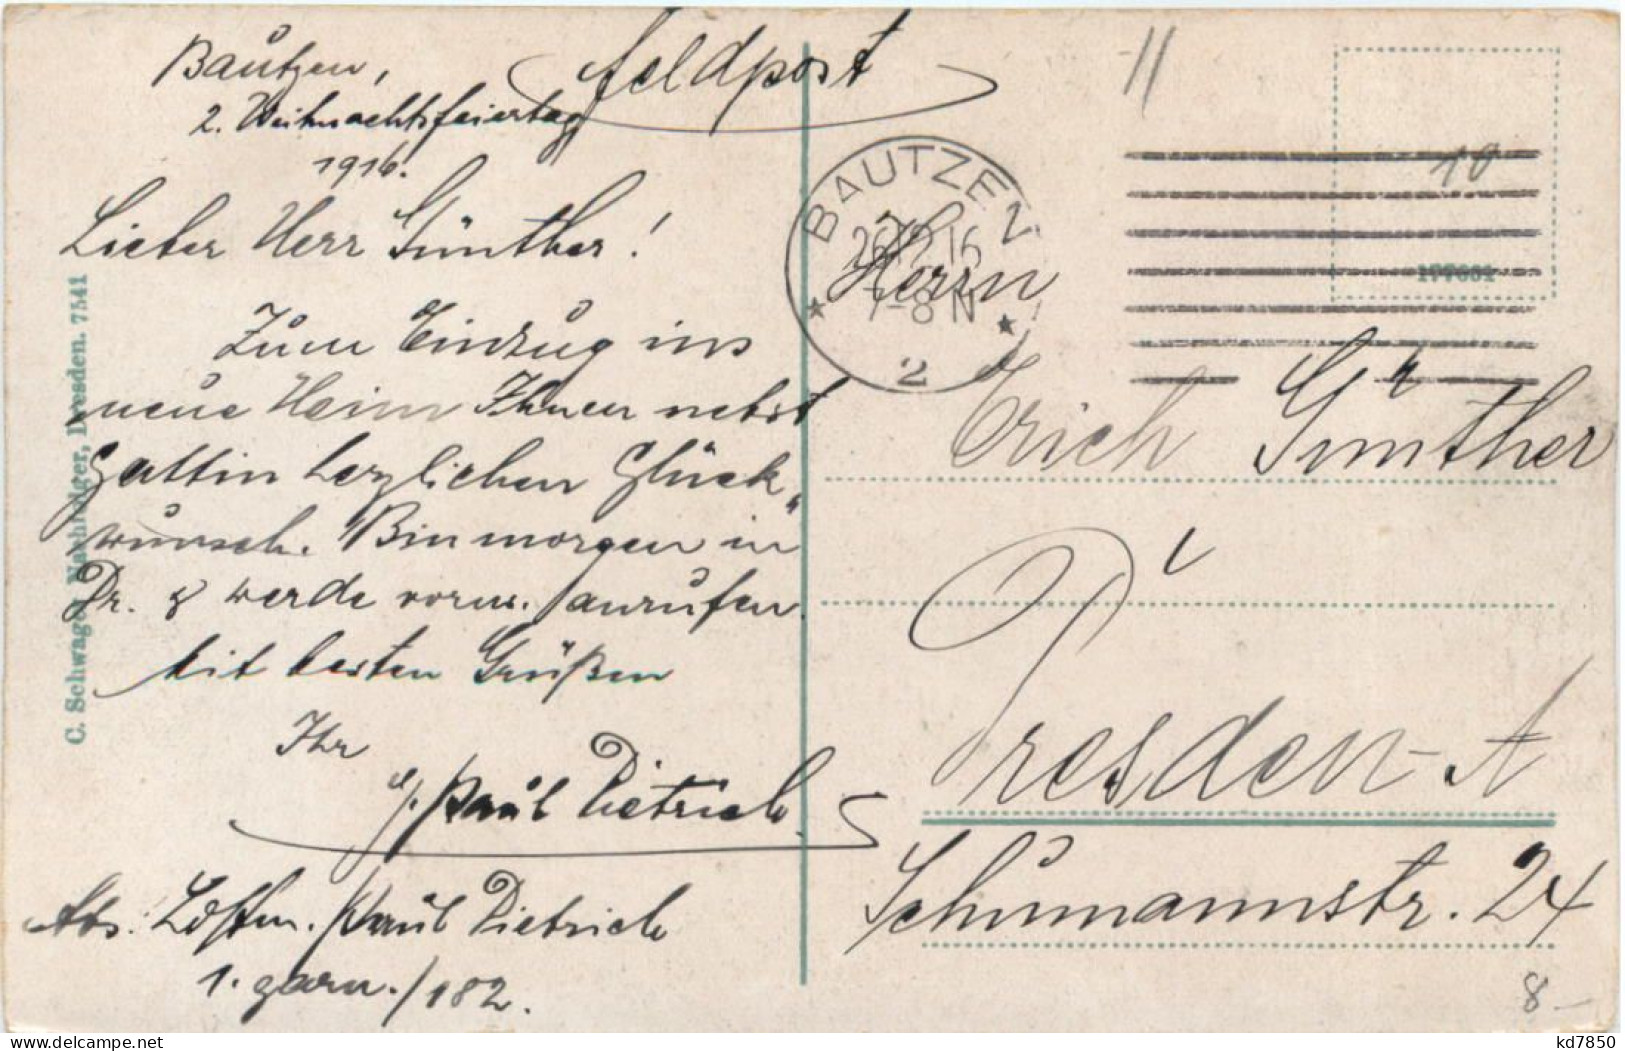 Feldpost
Bautzen,
2. Weihnachtsfeiertag
1916.
Lieber Herr Günther!
Zum Einzug ins
neue Heim Ihnen nebst
Gattin herzlichen Glück-
wunsch. Bin morgen in
Dr. & werde vorm. anrufen.
Mit besten Grüßen
Ihr
Paul Dietrich
Abs. Paul Dietrich
1. garn./182.
C. Schwager Nachfolger, Dresden. 7541
BAUTZEN 2.
26.12.16
7-8 N
2
177631
10
Herrn
Erich Günther
Dresden-A
Schumannstr. 24
8-
kd7850